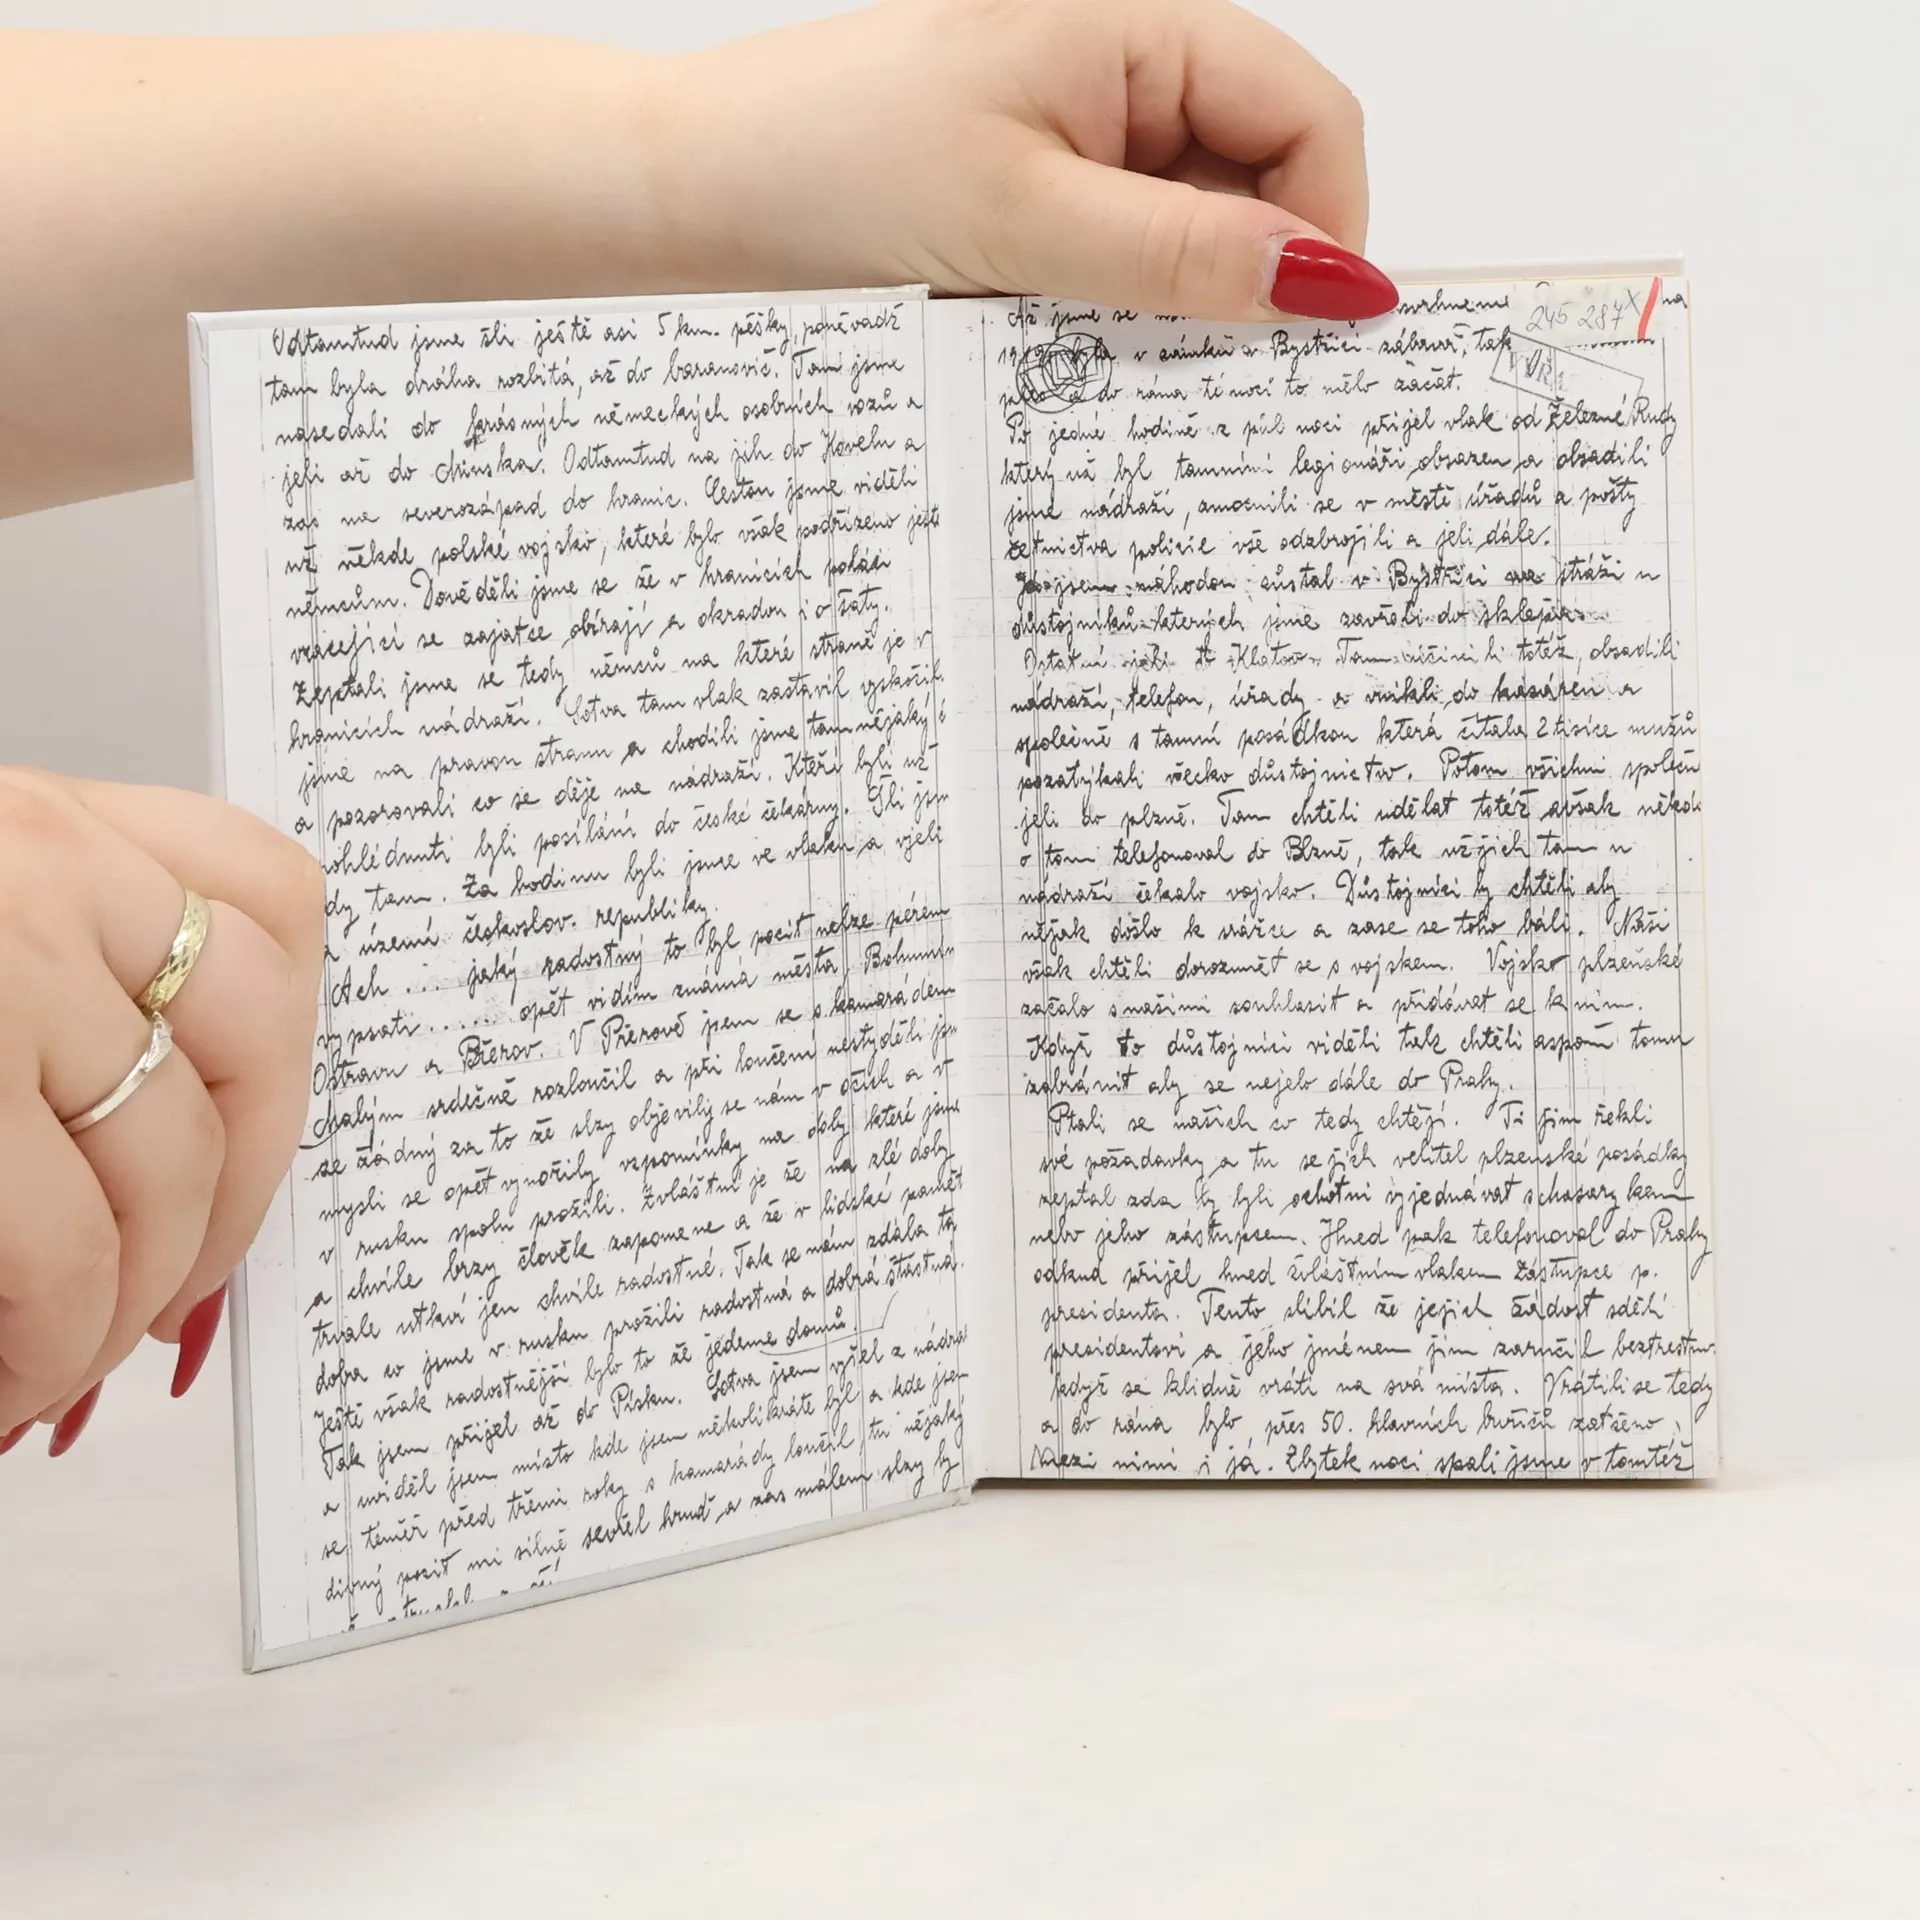 Odtamtud jsme šli ještě asi 5 km. pěšky, poněvadž
tam byla dráha rozbitá, až do baranovič. Tam jsme
nasedali do krásných německých osobních vozů a
jeli až do Minska. Odtamtud na jih do Kovelu a
zas na severozápad do hranic. Cestou jsme viděli
už někde polské vojsko, které bylo však podřízeno ještě
němcům. Dověděli jsme se že v hranicích poláci
vracející se zajatce obírají a okradou i o šaty.
Zeptali jsme se tedy němců na které straně je v
hranicích nádraží. Sotva tam vlak zastavil vyskočili
jsme na pravou stranu a chodili jsme tam nějaký č
a pozorovali co se děje na nádraží. Kteří byli už
rohlédnuti byli posíláni do české čekárny. Šli jsm
dy tam. Za hodinu byli jsme ve vlaku a vjeli
a území českoslov. republiky.
Ach ... jaký radostný to byl pocit nelze pérem
vypsati ...... opět vidím známá města, Bohumín
Ostravu a Přerov. V Přerově jsem se s kamarádem
Chabým srdečně rozloučil a při loučení nestyděli jsm
se žádný za to že slzy objevily se nám v očích a v
mysli se opět vynořily vzpomínky na doby které jsme
v rusku spolu prožili. Zvláštní je že na zlé doby
a chvíle brzy člověk zapomene a že v lidské paměti
trvale utkví jen chvíle radostné. Tak se nám zdála ta
doba co jsme v rusku prožili radostná a dobrá šťastná.
Ještě však radostnější bylo to že jedeme domů.
Tak jsem přijel až do Písku. Sotva jsem vyšel z nádraž
a uviděl jsem místo kde jsem několikráte byl a kde jsem
se téměř před třemi roky s kamarády loučil, tu nějaký
divný pocit mi silně sevřel hruď a zas málem slzy by
245 287 X
Až jsme se svrhneme na
1919 byla v zámku v Bystřici zábava, tak
a do rána té noci to mělo začat.
Po jedné hodině z půl noci přijel vlak od Železné Rudy
který už byl tamními legionáři obsazen a obsadili
jsme nádraží, zmocnili se v městě úřadů a pošty
četnictva policie vše odzbrojili a jeli dále.
Já jsem náhodou zůstal v Bystřici na stráži u
důstojníků kterých jsme zavřeli do sklepa.
Ostatní jeli do Klatov. Tam učinili totéž, obsadili
nádraží, telefon, úřady a vnikli do kasáren a
společně s tamní posádkou která čítala 2 tisíce mužů
pozatýkali všecko důstojnictvo. Potom všichni společn
jeli do plzně. Tam chtěli udělat totéž avšak někdo
o tom telefonoval do Plzně, tak už jich tam u
nádraží čekalo vojsko. Důstojníci by chtěli aby
nějak došlo k srážce a zase se toho báli. Naši
však chtěli dorozumět se s vojskem. Vojsko plzeňské
začalo s našimi souhlasit a přidávat se k nim.
Když to důstojníci viděli tak chtěli aspoň tomu
zabránit aby se nejelo dále do Prahy.
Ptali se našich co tedy chtějí. Ti jim řekli
své požadavky a tu se jich velitel plzeňské posádky
zeptal zda by byli ochotni vyjednávat s Masarykem
nebo jeho zástupcem. Hned pak telefonoval do Prahy
odkud přijel hned zvláštním vlakem zástupce p.
presidenta. Tento slíbil že jejich žádost sdělí
presidentovi a jeho jménem jim zaručil beztrestn.
když se klidně vrátí na svá místa. Vrátili se tedy
a do rána bylo přes 50. hlavních buřičů zatčeno,
Mezi nimi i já. Zbytek noci spali jsme v tomtéž